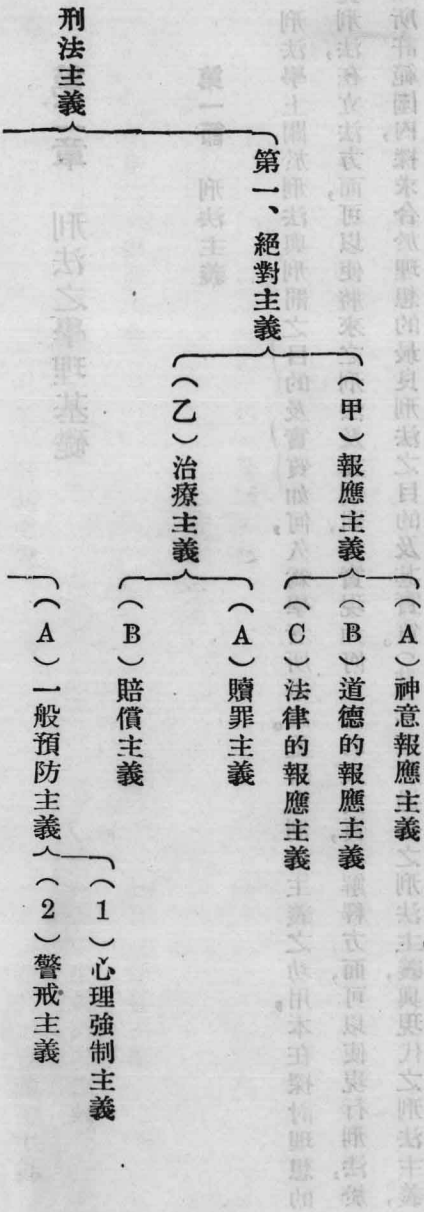 刑法主義
第一、絕對主義
（甲）報應主義
（A）神意報應主義
（B）道德的報應主義
（C）法律的報應主義
（乙）治療主義
（A）贖罪主義
（B）賠償主義
（A）一般預防主義
（1）心理強制主義
（2）警戒主義